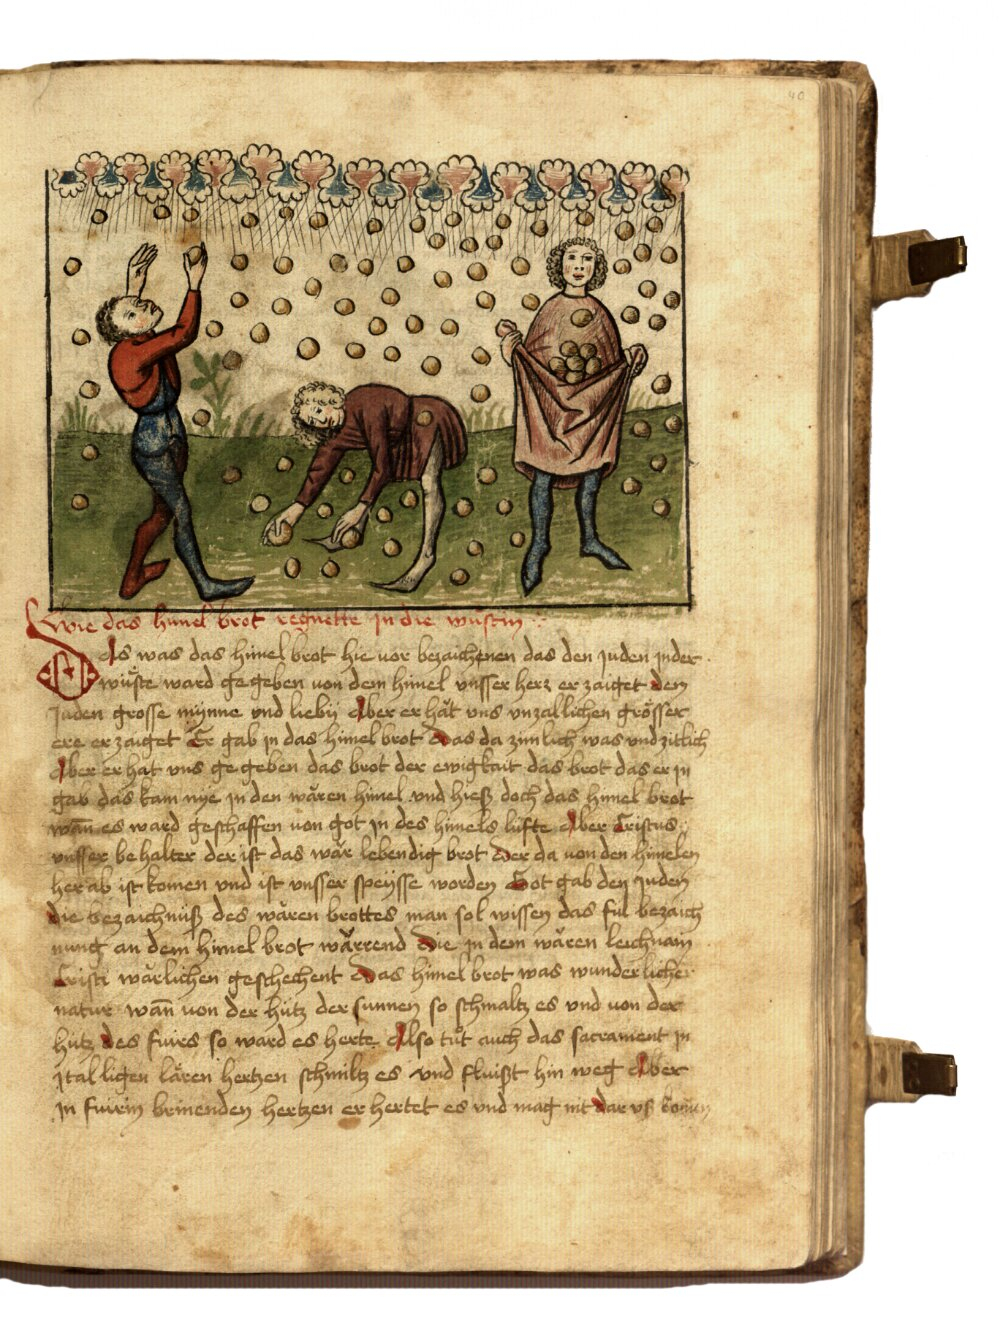 40
Wie das himel brot regnette jn die wuͤstin
DAs was das himel brot hie vor bezaichenen das den juden jnder
wuͤste ward gegeben von dem himel vnsser herr erzaiget den
juden grosse mynne vnd liebii Aber er hăt vns vnzallichen groͤsser
ere erzaiget Er gab jn das himel brot Das da zimlich was vnd zitlich
Aber er hat vns gegeben das brot der ewigkait das brot das er jn
gab das kam nye jn den wăren himel vnd hieß doch das himel brot
wan̄ es ward geschaffen von got jn des himels lüfte Aber Cristus
vnsser behalter der ist das wăr lebendig brot Der da von den himelen
her ab ist komen vnd ist vnsser speysse worden Got gab den juden
die bezaichnuß des wăren brottes man sol wissen das fül bezaich
nung an dem himel brot wărrend Die jn dem wăren leichnam
Cristi wărlichen geschechent Das himel brot was wunderlicher
natur wan̄ von der hitz der sunnen so schmaltz es vnd von der
hitz des fuirs so ward es herte Also tuͦt auch das sacrament jn
jtalligen lăren hertzen schmiltz es vnd fluißt hin weg Aber
jn fuirin brinenden hertzen er hertet es vnd mag nit dar vß komen